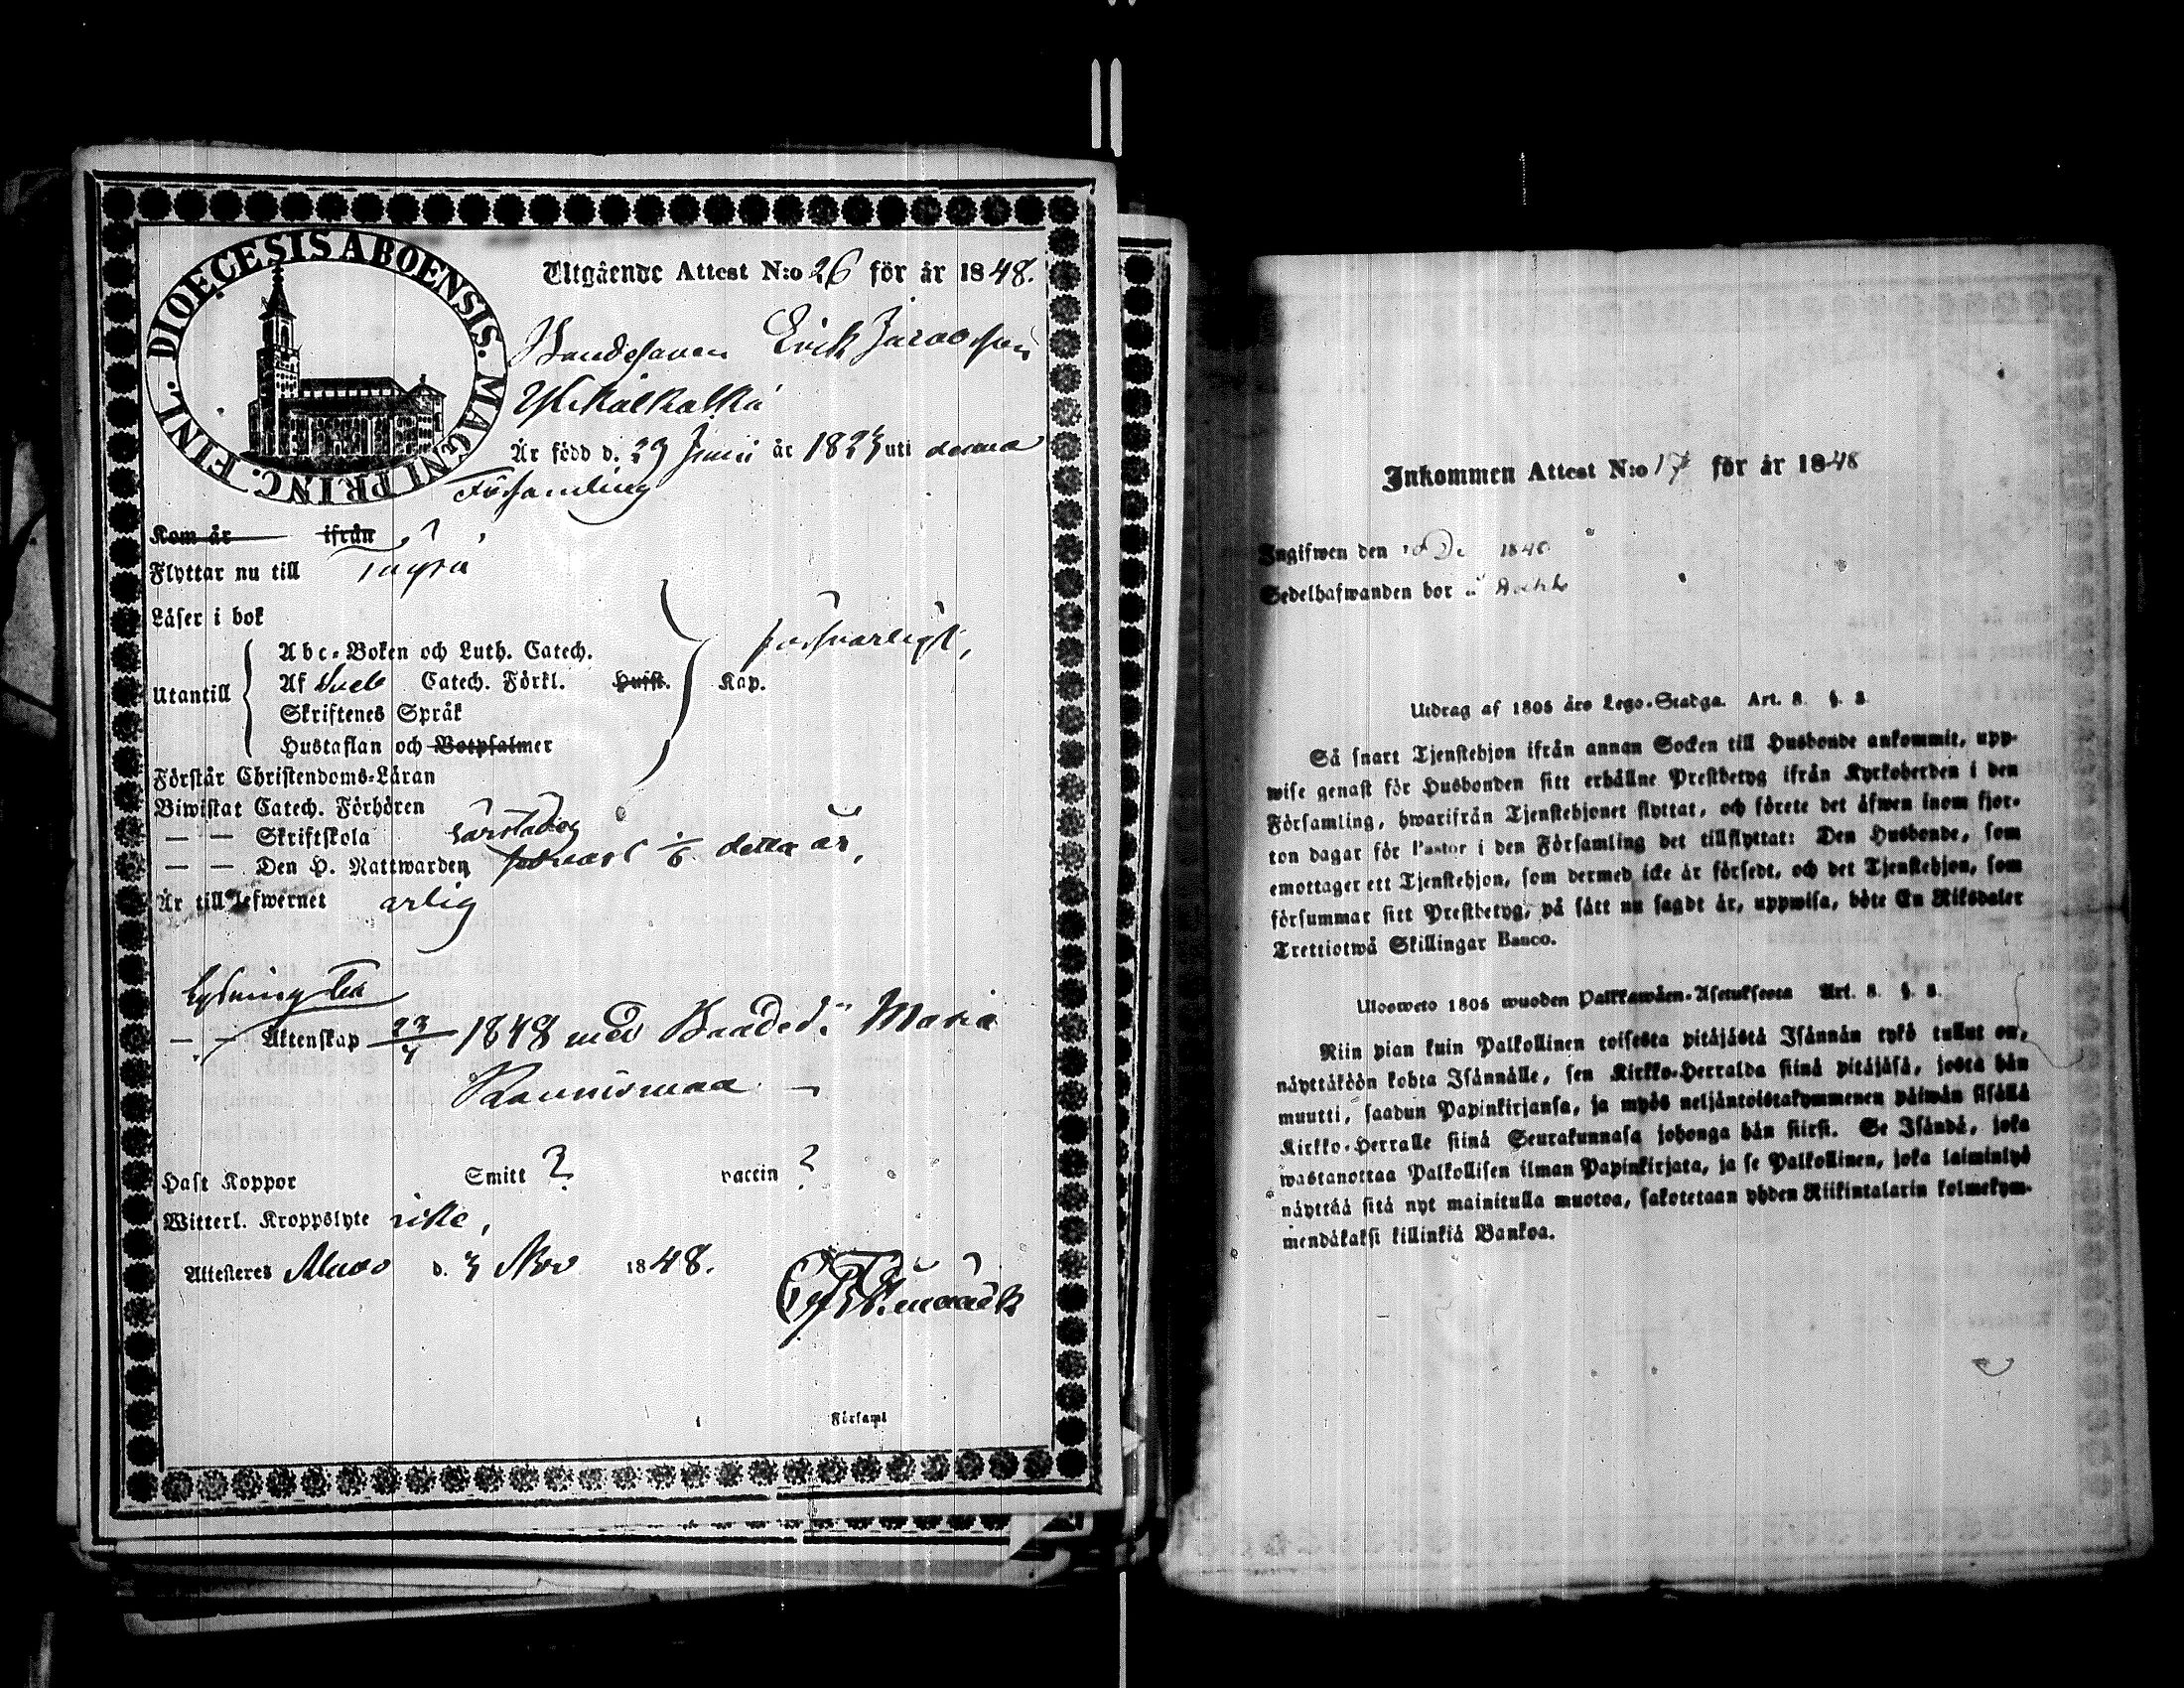 DIOECESIS ABOENSIS. MAGNI PRINC. FINL.
Utgående Attest N:o 26 för år 1848.
Bondesonen Erik Jacobsson
Är född d. 29 Junii år 1823 uti denna
Församling
Kom år ifrån
Flyttar nu till
Läser i bok
försvarligt,
Abc-Boken och Luth. Catech.
Utantill Af Sueb Catech. Förkl. Hufst. Kap.
Skriftenes Språk
Hustaflan och Botpsalmer
Förstår Christendoms-Läran
Biwistat Catech. Förhören
— — Skriftskola
— — Den H. Nattwarden detta år,
Är till lefwernet ärlig
Lysning till
— — Äktenskap 1848 med Bonded. Maria
Haft Koppor Smitt ? vaccin ?
Witterl. Kroppslyte icke,
Attesteres Alavo d. 3 Nov 1848.
Församl
Inkommen Attest N:o 17 för år 1848
Ingifwen den
Sedelhafwanden bor
Utdrag af 1805 års Lego-Stadga. Art. 8. §. 8.
Så snart Tjenstehjon ifrån annan Socken till Husbonde ankommit, upp-
wise genast för Husbonden sitt erhållne Prestbetyg ifrån Kyrkoherden i den
Församling, hwarifrån Tjenstehjonet flyttat, och förete det äfwen inom fjor-
ton dagar för Pastor i den Församling det tillflyttat: Den Husbonde, som
emottager ett Tjenstehjon, som dermed icke är försedt, och det Tjenstehjon, som
försummar sitt Prestbetyg, på sätt nu sagdt är, uppwisa, böte En Riksdaler
Trettiotwå Skillingar Banco.
Uloosweto 1805 wuoden Palkkawäen-Asetuksesta Art. 8. §. 8.
Niin pian kuin Palkollinen toisesta pitäjästä Isännän tykö tullut on,
näyttäköön kohta Isännälle, sen Kirkko-Herralda siinä pitäjäsä, josta hän
muutti, saadun Papinkirjansa, ja myös neljäntoistakymmenen päiwän sisällä
Kirkko-Herralle siinä Seurakunnasa johonga hän siirsi. Se Isändä, joka
wastanottaa Palkollisen ilman Papinkirjata, ja se Palkollinen, joka laiminlyö
näyttää sitä nyt mainitulla muotoa, sakotetaan yhden Riikintalarin kolmekym-
mendäkaksi killinkiä Bankoa.